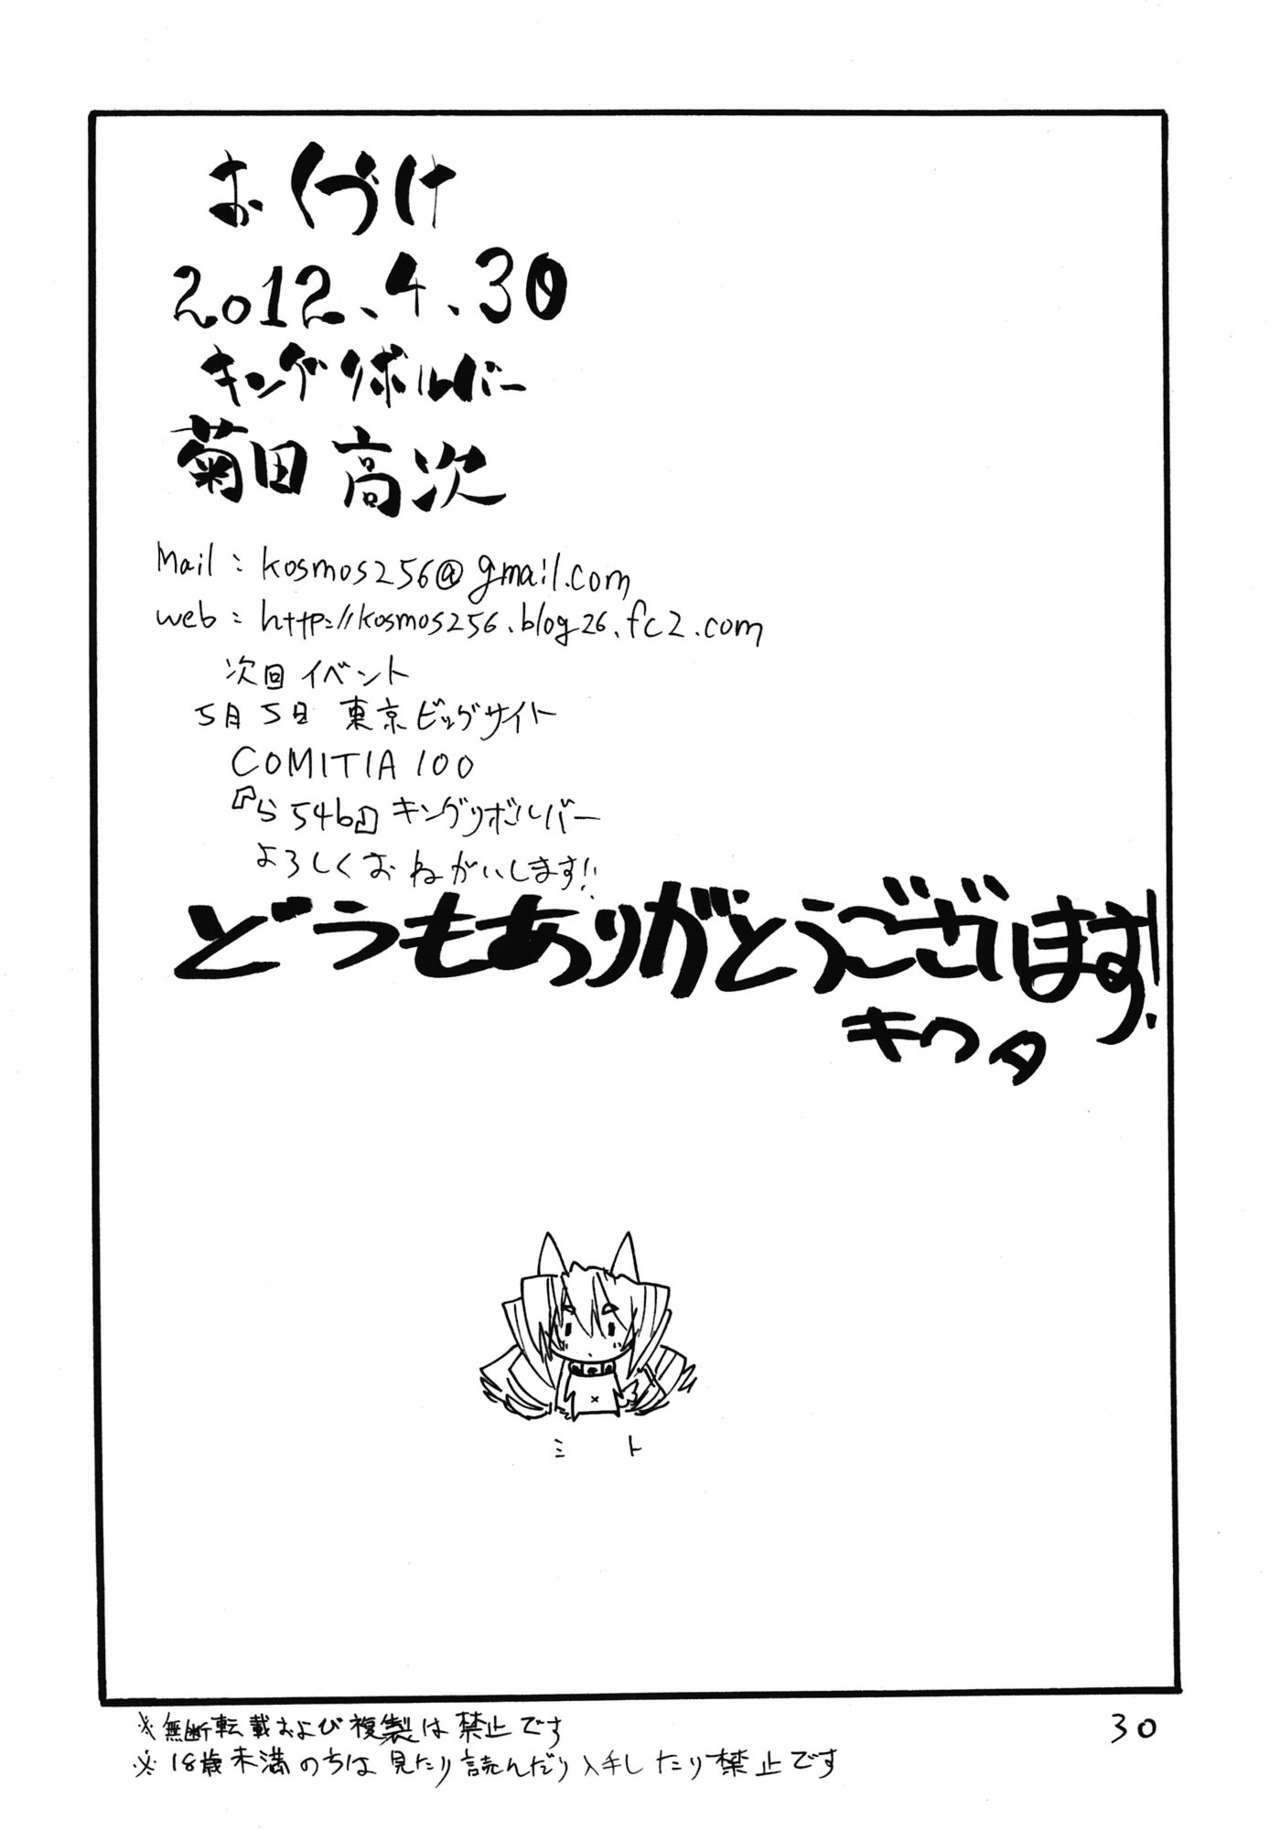 おくづけ
2012.4.30
キングリボルバー
菊田高次
Mail : kosmos256@gmail.com
web : http://kosmos256.blog26.fc2.com
次回イベント
5月5日 東京ビッグサイト
COMITIA 100
『ら54b』キングリボルバー
よろしくおねがいします!!
どうもありがとうございます!
キクタ
ミト
※無断転載および複製は禁止です
※18歳未満のちは見たり読んだり入手したり禁止です
30